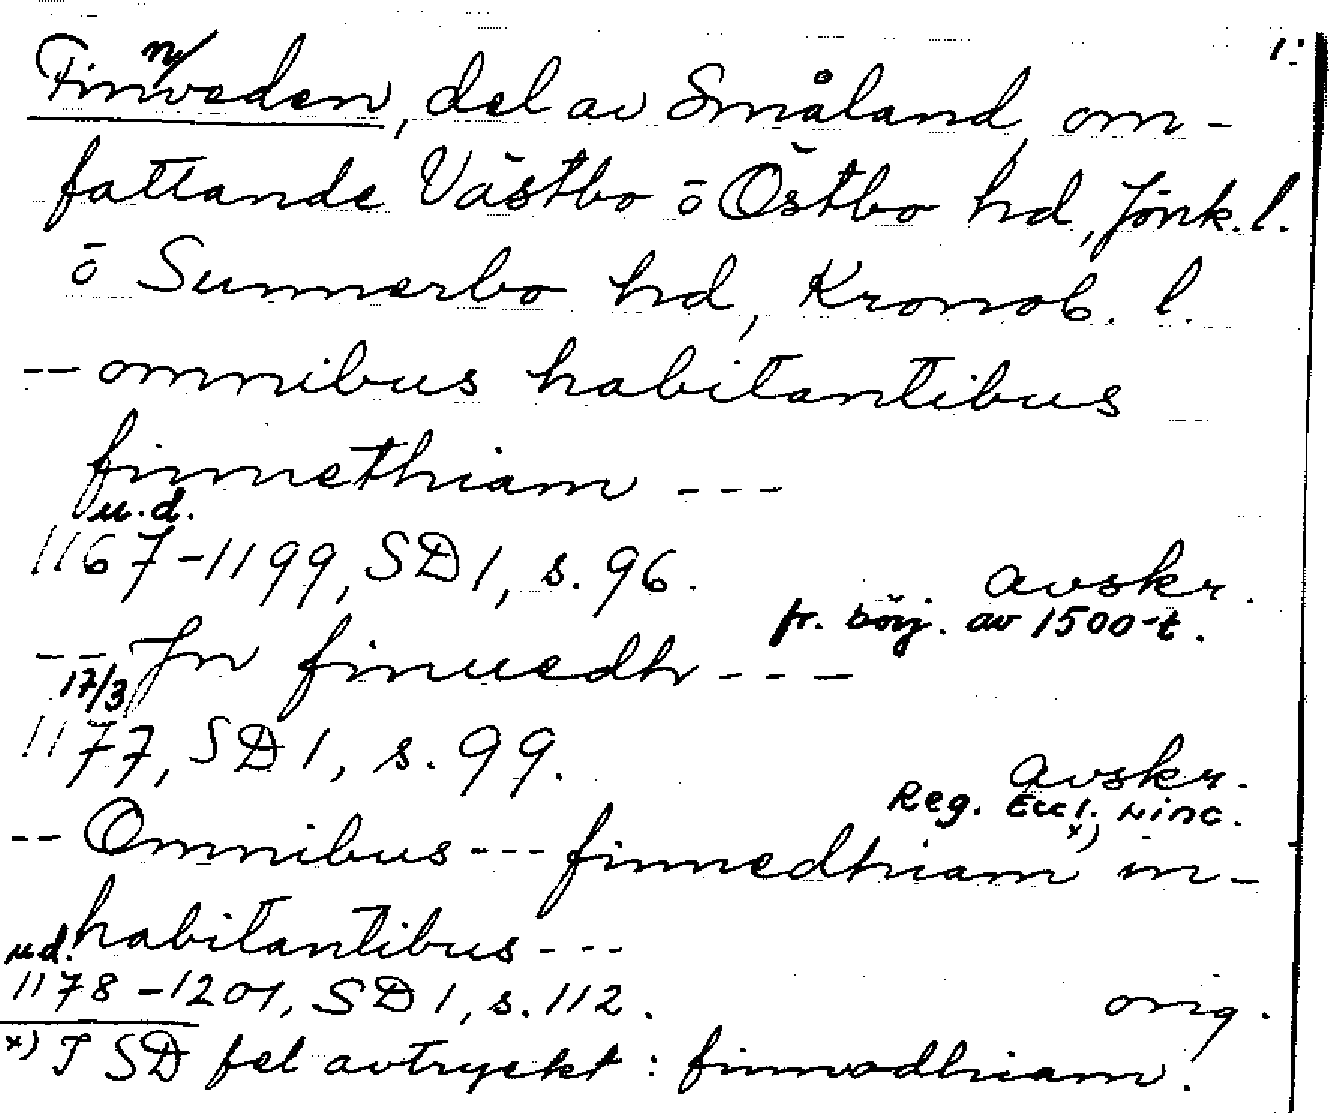 1.
Finnveden, del av Småland, om-
fattande Västbo o Östbo hd, Jönk. l.
o Sunnerbo hd, Kronob. l.
-- omnibus habitantibus
finnethiam ---
u.d.
1167-1199, SD 1, s. 96. avskr.
fr. börj. av 1500-t.
-- Jn finuedh ---
17/3
1177, SD 1, s. 99. avskr.
Reg. Eccl. Linc.
-- Omnibus --- finnedhiam x) in-
habitantibus ---
u.d.
1178-1201, SD 1, s. 112. orig.
x) I SD fel avtryckt: finnodhiam.